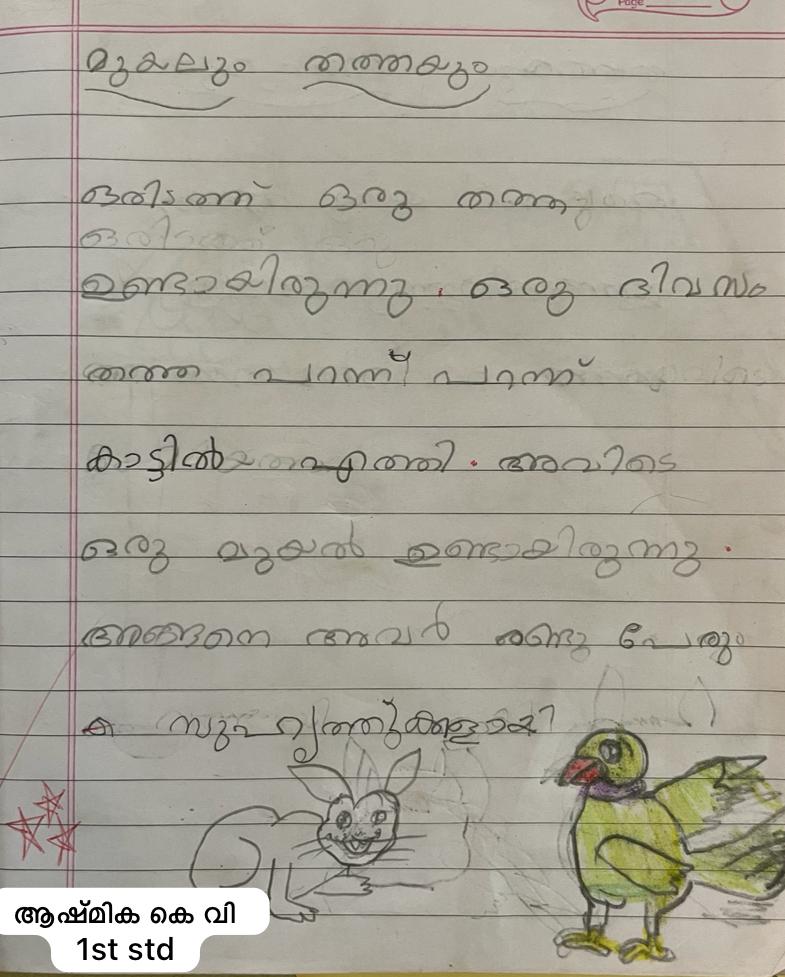 Page
മുയലും തത്തയും
ഒരിടത്ത് ഒരു തത്ത
ഉണ്ടായിരുന്നു. ഒരു ദിവസം
തത്ത പറന്ന് പറന്ന്
കാട്ടിൽ എത്തി. അവിടെ
ഒരു മുയൽ ഉണ്ടായിരുന്നു.
അങ്ങനെ അവർ രണ്ടു പേരും
സുഹൃത്തുക്കളായി
ആഷ്മിക കെ വി
1st std